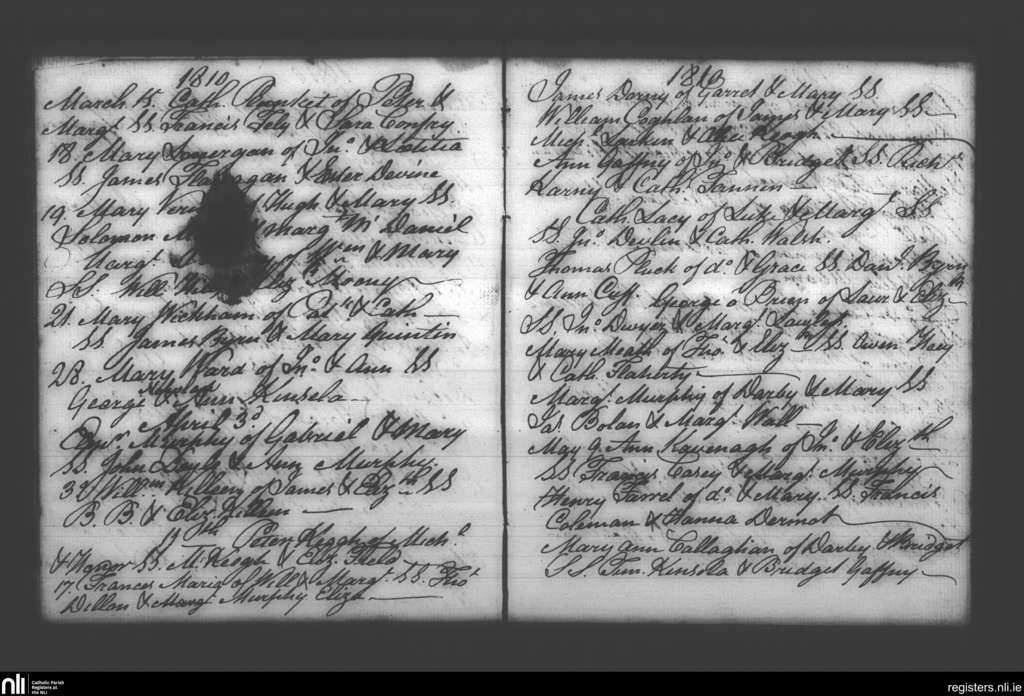 1810
March 15. Cath. Plunket of Peter &
Margt. SS. Francis Fely & Sara Confry
18. Mary Lonergan of Jno. & Letitia
SS. James Flannagan & Ester Devine
19. Mary of Hugh & Mary SS.
Solomon & Marg Mc Daniel
Margt. of Wm & Mary
SS. Will. Mooney
21. Mary Wickham of Patk & Cath
SS James Byrn & Mary Quintin
28. Mary Ward of Jno. & Ann SS
George & Ann Kinsela
April 3d
Murphy of Gabriel & Mary
SS. John Doyle & Ann Murphy
3d Willm Killeen of James & Eliz.th SS
B. B. & Eliz. Killen
11th Peter Keogh of Mich.l
& Honor SS. M. Keogh & Eliz. Field
17. Frances Maria of Will & Margt. SS. Thos
Dillon & Margt. Murphy Eliza
1810
James Dorny of Garret & Mary SS
William Coghlan of James & Mary SS
Michl. Larkin & Keogh
Ann Gaffny of Jno. & Bridget SS. Richd.
Karny & Cath. Fannin
Cath. Lacy of Luke & Margt SS
SS. Jno. Devlin & Cath. Walsh.
Thomas Pluck of do. & Grace SS. Danl. Byrn
& Ann Cuff. George o Brien of Laur & Eliz.th
SS. Jno. Dwyer & Margt. Lawler
Mary Meath of Thos. & Eliz.th SS Owen
& Cath. Flaherty
Margt. Murphy of Darby & Mary SS
Jas Bolan & Margt. Wall
May 9. Ann Kavenagh of Jno. & Eliz.th
SS. Francis Casey & Margt. Murphy
Henry Farrel of do. & Mary. SS. Francis
Coleman & Hanna Dermot
Mary ann Callaghan of Darby & Bridget
SS. Tim. Kinsela & Bridget Gaffny
nli
Catholic Parish
Registers at
the NLI
registers.nli.ie